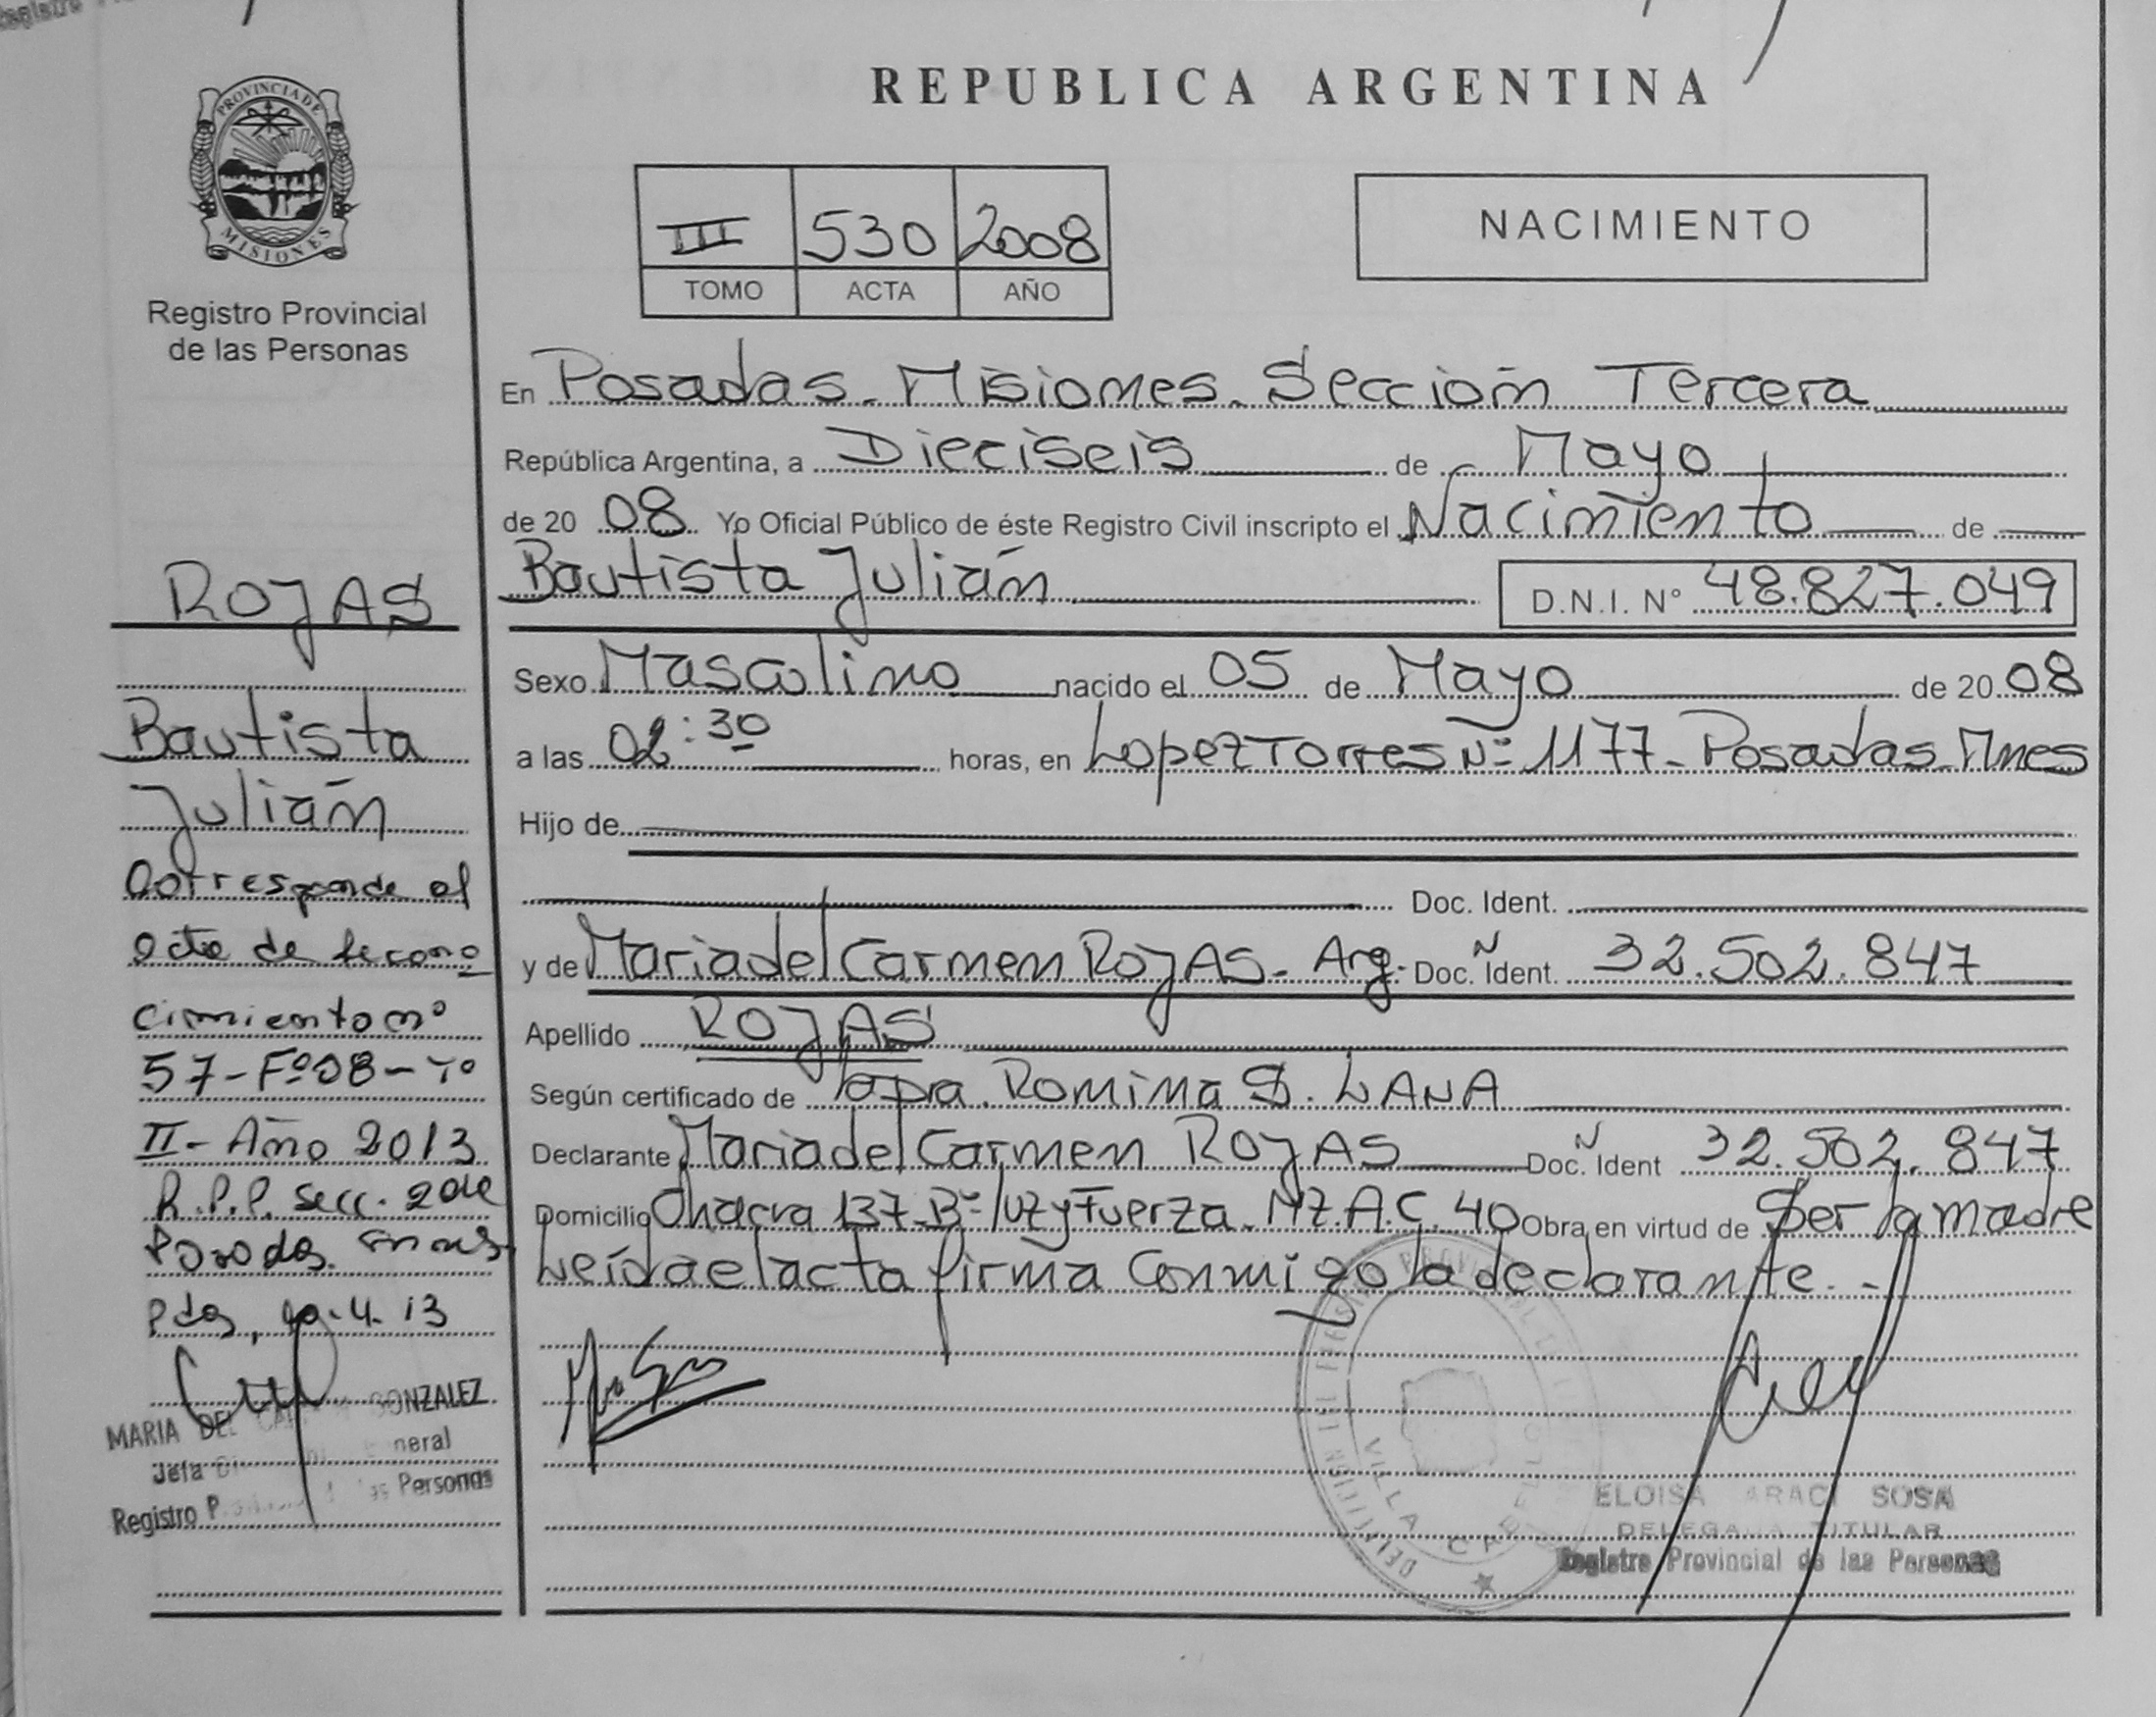 PROVINCIA DE
MISIONES
Registro Provincial
de las Personas
ROJAS
Bautista
Julián
Corresponde al
acta de recono
cimiento nº
57-Fº08-Tº
II-Año 2013
R.P.P. secc. 2 de
Posadas. Mnes
Pdas, 4. 13
MARIA DEL GONZALEZ
Jefa neral
Registro Personas
REPUBLICA ARGENTINA
III 530 2008
TOMO ACTA AÑO
NACIMIENTO
En Posadas - Misiones - Sección Tercera
República Argentina, a Dieciseis de Mayo
de 20 08 Yo Oficial Público de éste Registro Civil inscripto el Nacimiento de
Bautista Julián D.N.I. Nº 48.827.049
Sexo Masculino nacido el 05 de Mayo de 20 08
a las 02:30 horas, en Lopez Torres Nº 1177 - Posadas - Mnes
Hijo de
Doc. Ident.
y de Maria del Carmen ROJAS - Arg. Doc. Ident. 32.502.847
Apellido ROJAS
Según certificado de Romina S. LANA
Declarante Maria del Carmen ROJAS Doc. Ident 32.502.847
Domicilio Chacra 137 - Bº luz y Fuerza - MZ. A. C. 40 Obra en virtud de Ser la madre
Leída el acta firma Conmigo la declarante. -
VILLA CABELLO
ELOISA ARACI SOSA
DELEGADA TITULAR
Registro Provincial de las Personas